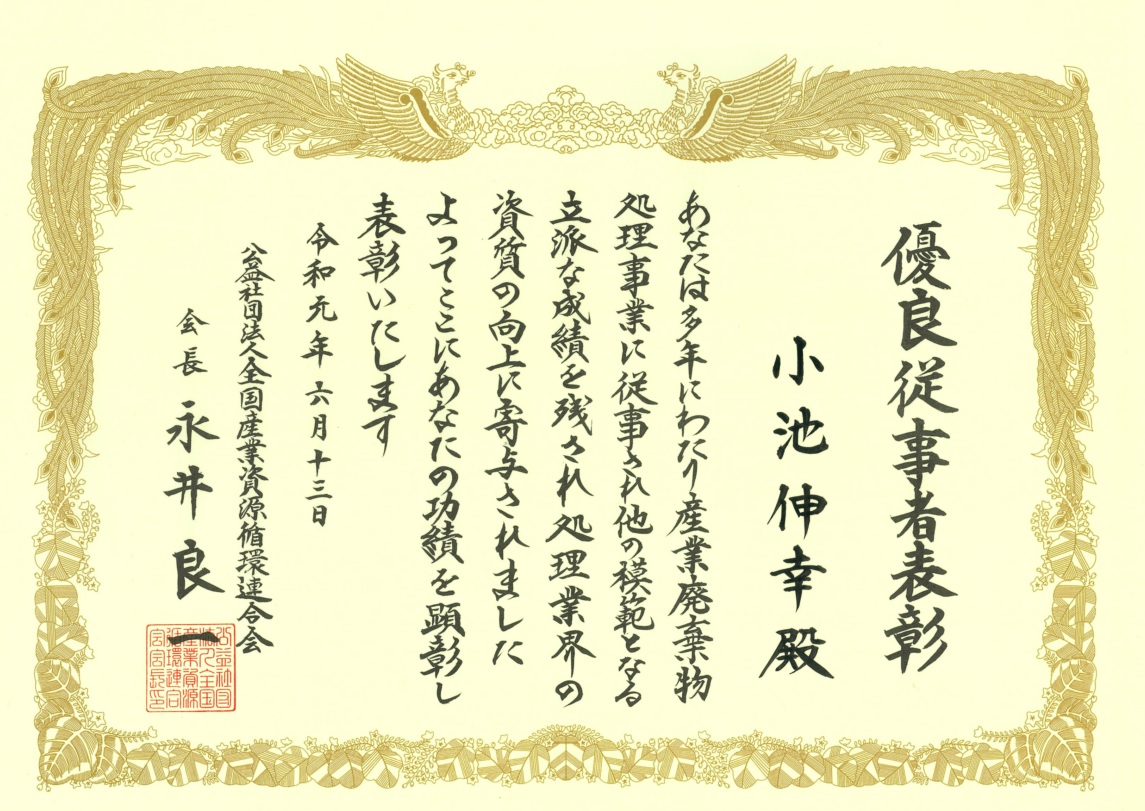 優良従事者表彰
小池伸幸殿
あなたは多年にわたり産業廃棄物
処理事業に従事され他の模範となる
立派な成績を残され処理業界の
資質の向上に寄与されました
よってここにあなたの功績を顕彰し
表彰いたします
令和元年六月十三日
公益社団法人全国産業資源循環連合会
会長 永井良一
公益社団
法人全国
産業資源
循環連合
会会長印